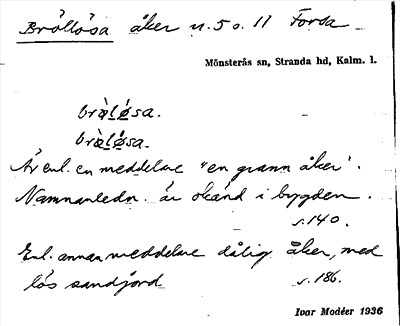 Brållösa åker n. 5 o. 11 Forsa
Mönsterås sn, Stranda hd, Kalm. l.
Är enl. en meddelare "en grann åker".
Namnanledn. är okänd i bygden.
s. 140.
Enl. annan meddelare dålig åker, med
lös sandjord s. 186.
Ivar Modéer 1936